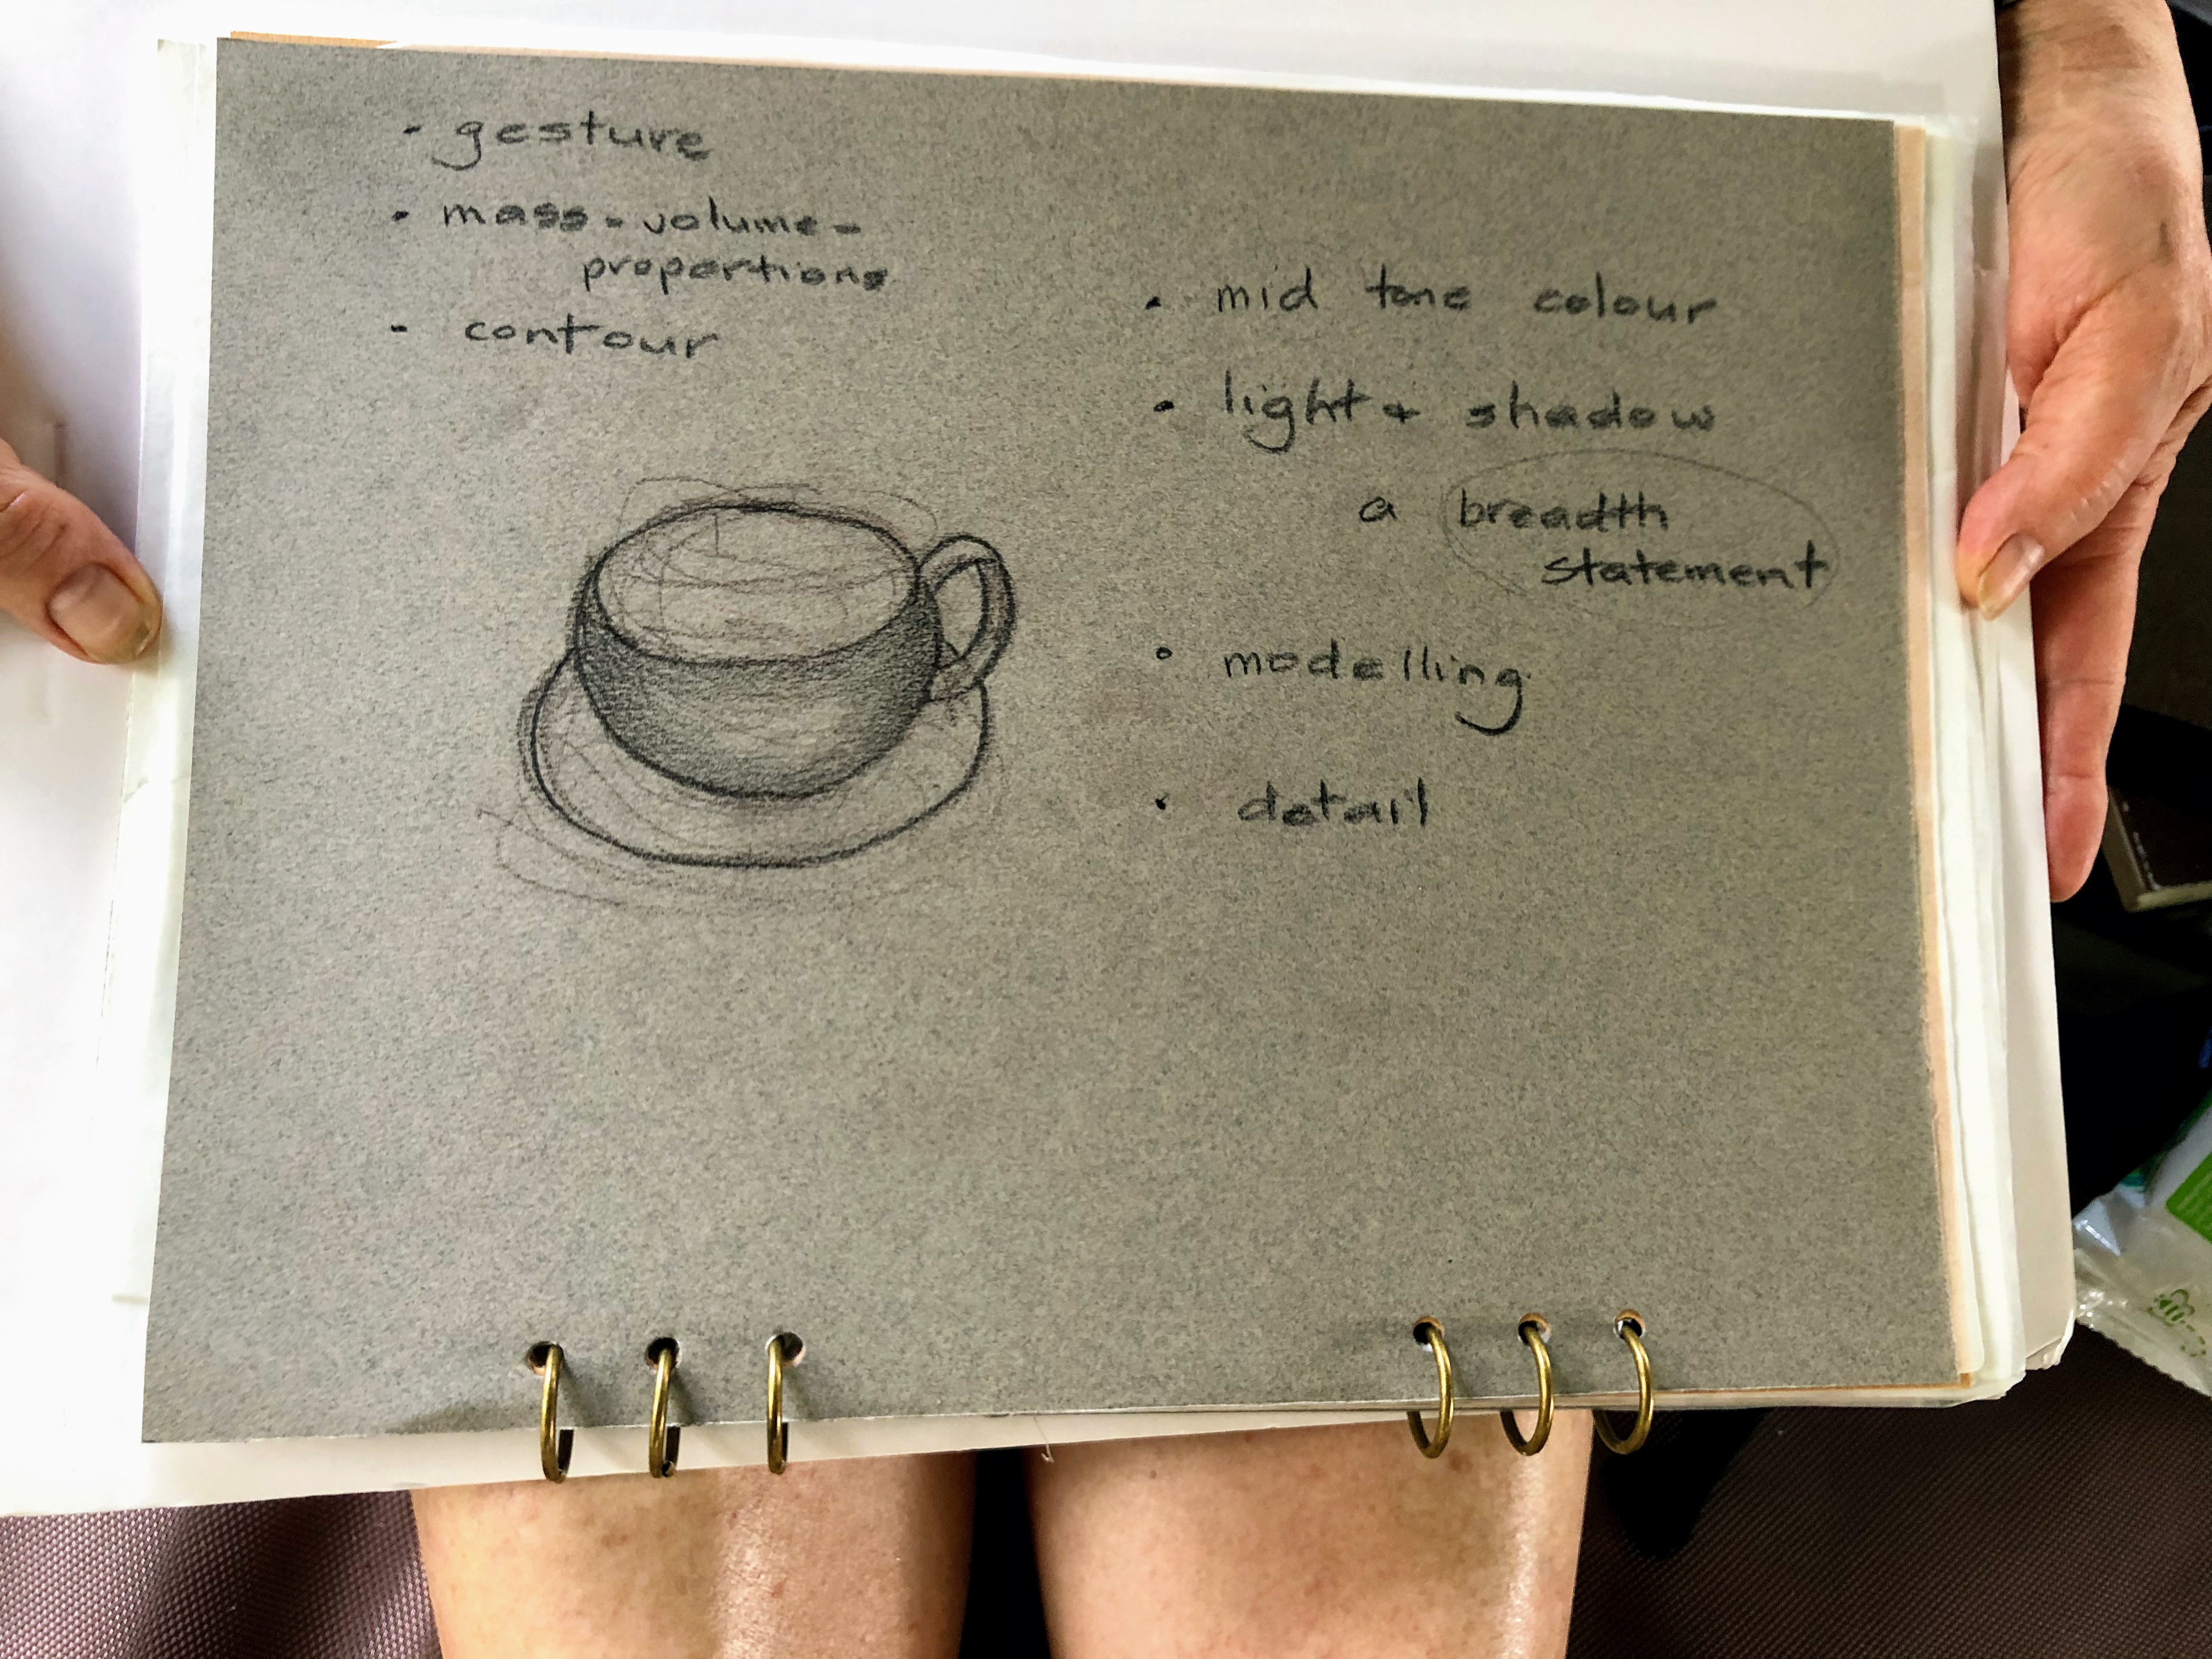 · gesture
· mass - volume -
proportions
- contour
· mid tone colour
· light + shadow
a breadth
statement
· modelling
· detail